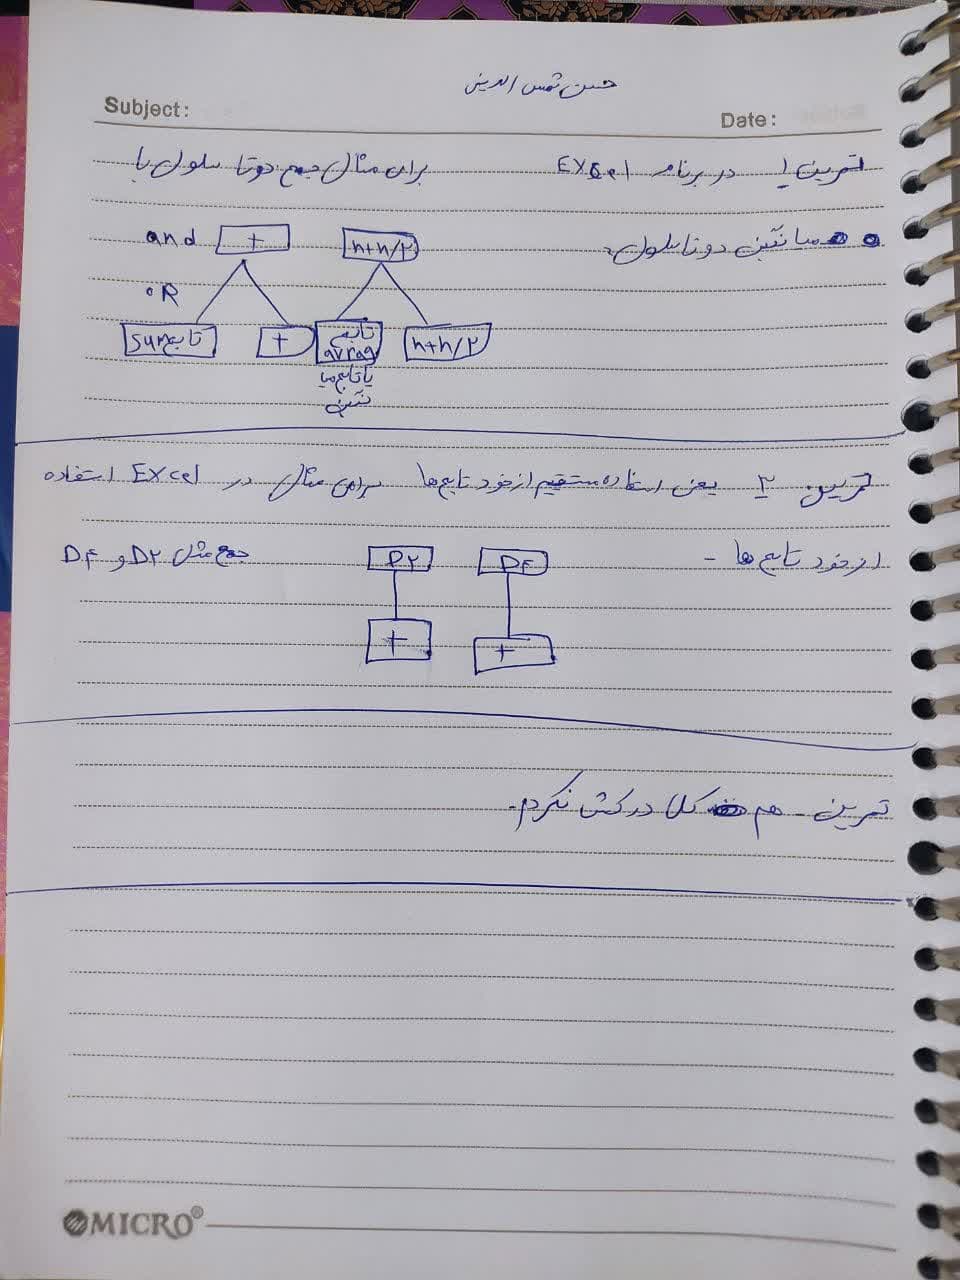 حسن شمس الدینی
Subject:
Date:
تمرین ۱ در برنامه EXCel برای مثال جمع دوتا سلول با
میانگین دوتا سلول.
and + n+n/۲
OR
تابع sum + تابع avrag n+n/۲
یا تابع میا
نگین
تمرین ۲ یعنی استفاده مستقیم از خود تابع‌ها برای مثال در EXcel استفاده
از خود تابع ها -
D۲ D۴ جمع مثل D۲ و D۴
+ +
تمرین - هم کلا درکش نکردم.
MICRO®